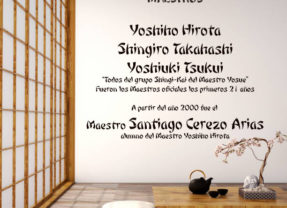 MAESTROS
Yoshiho Hirota
Shingiro Takahashi
Yoshiuki Tsukui
"Todos del grupo Shingi-Kai del Maestro Yosue"
Fueron los Maestros oficiales los primeros 21 años
A partir del año 2000 fue el
Maestro Santiago Cerezo Arias
alumno del Maestro Yoshiho Hirota